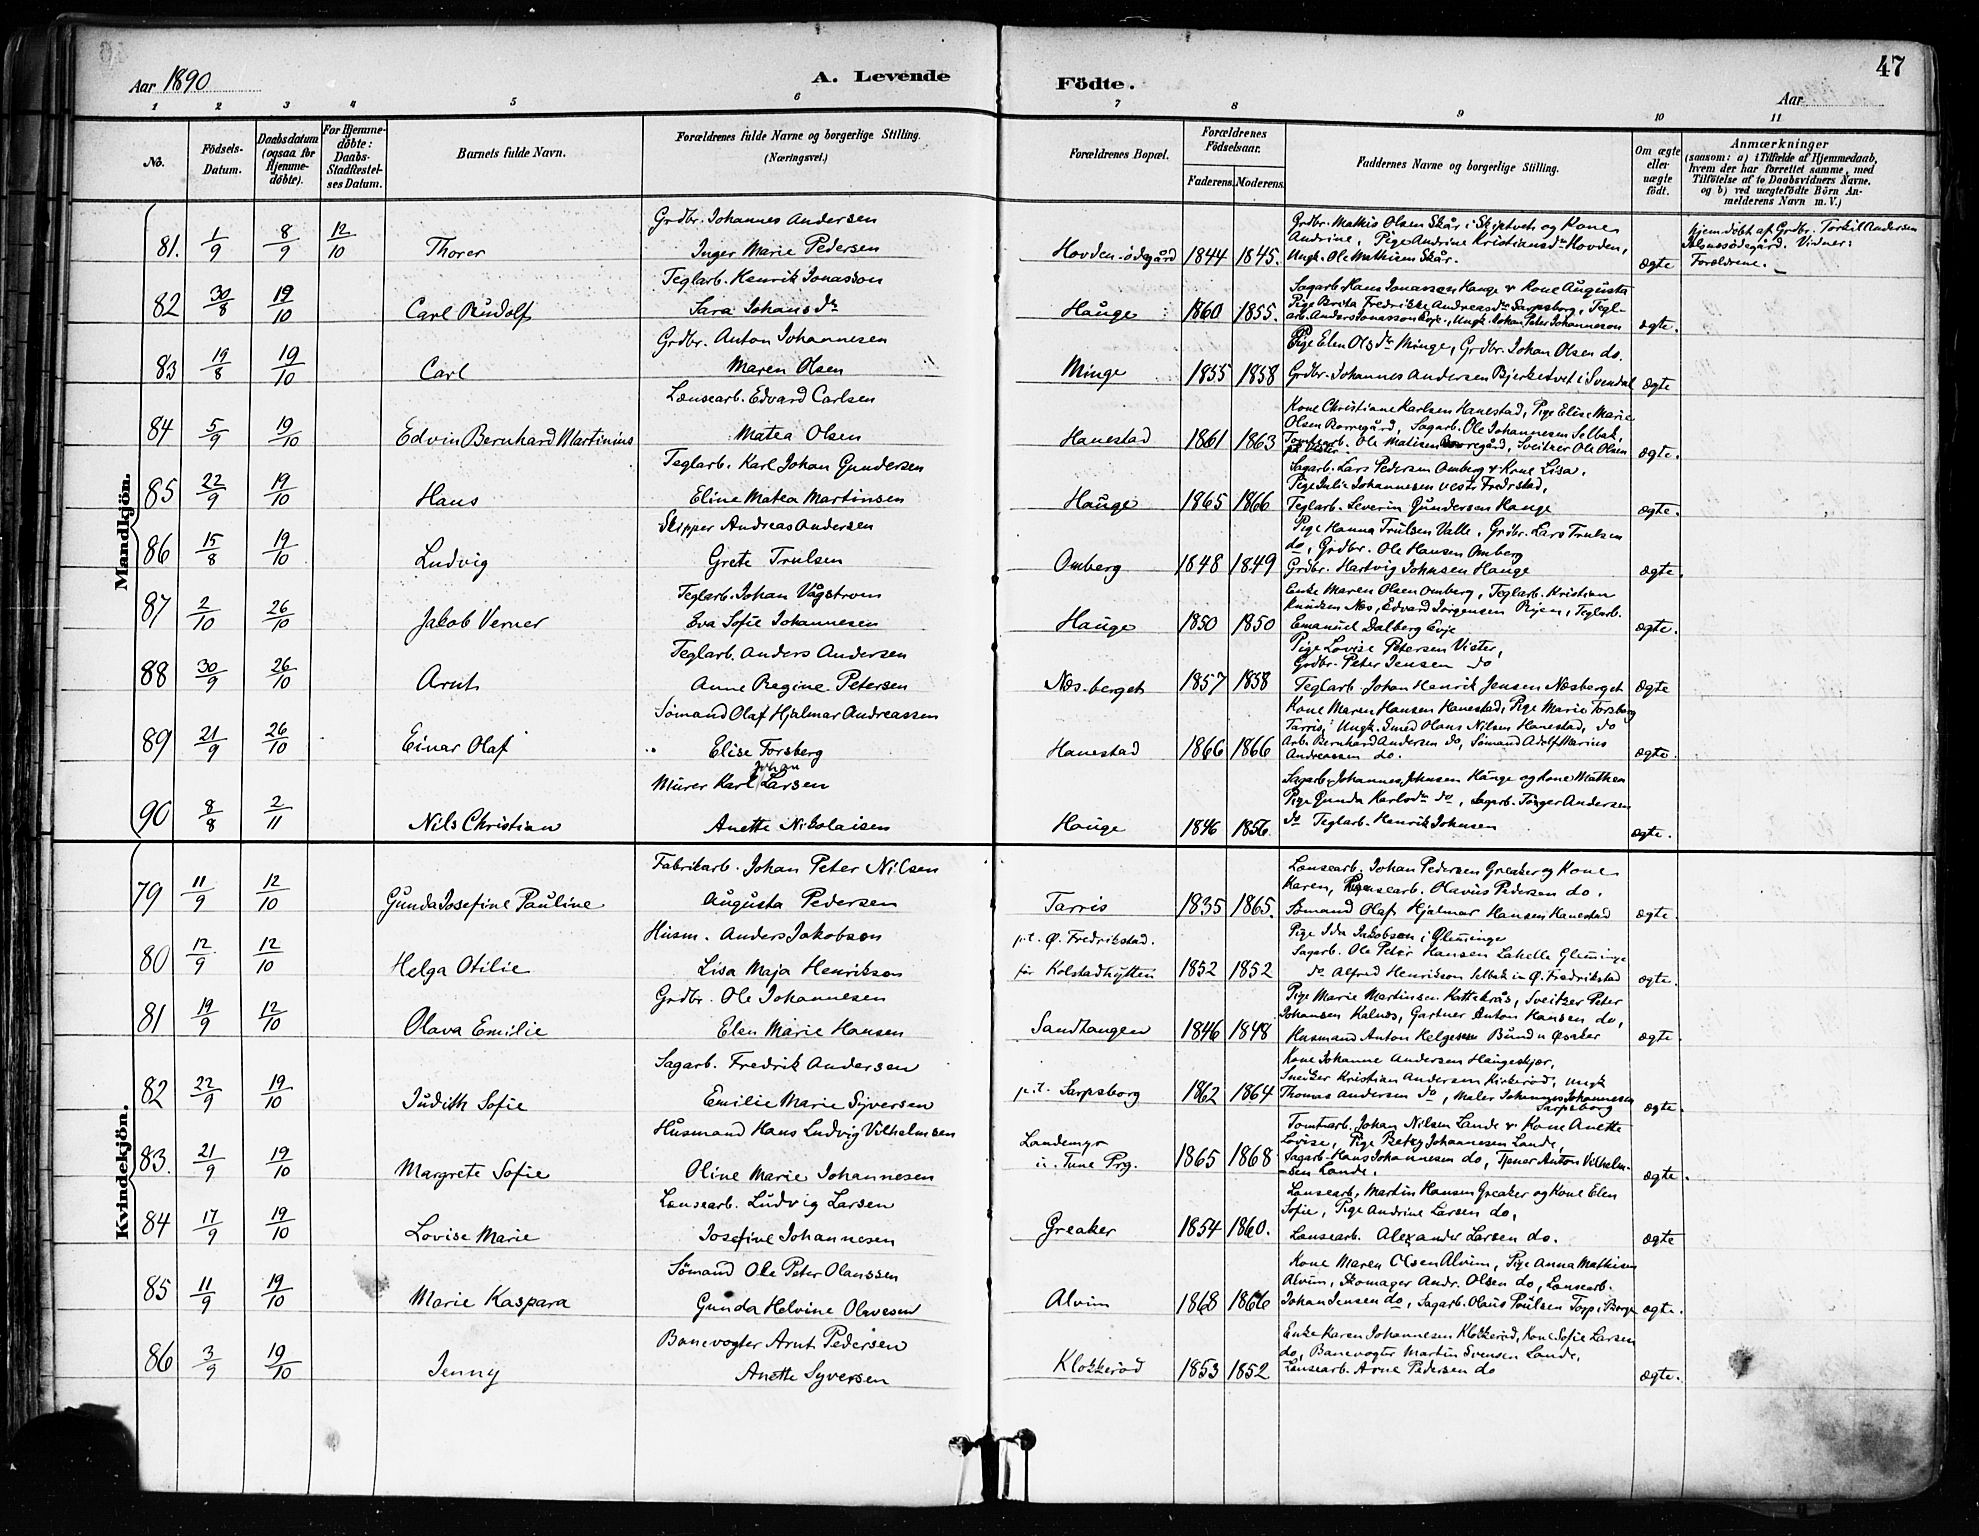 Aar 1890
A. Levende
Födte.
47
Aar
1 2 3 4 5 6 7 8 9 10 11
No.
Födsels-Datum.
Daabsdatum (ogsaa for Hjemme-döbte).
For Hjemme-döbte: Daabs-Stadfæstel-ses Datum.
Barnets fulde Navn.
Forældrenes fulde Navne og borgerlige Stilling. (Næringsvei.)
Forældrenes Bopæl.
Forældrenes Födselsaar.
Faderens.
Moderens.
Faddernes Navne og borgerlige Stilling.
Om ægte eller uægte födt.
Anmærkninger
(saasom: a) i Tilfælde af Hjemmedaab, hvem der har forrettet samme, med Tilföielse af to Daabsvidners Navne, og b) ved uægtefödte Börn An-melderens Navn m. V.)
Mandkjön.
81. 1/9 8/9 12/10 Thorer
Grdbr. Johannes Andersen
Inger Marie Pedersen
Hovden-ødegård 1844 1845.
Grdbr. Mathis Olsen Skår i Skiptvet og Kone
Andrine, Pige Andrine Kristiansdtr Hovden,
Ungk. Ole Mathisen Skår.
ægte
hjemdöbt af Grdbr. Torkil Andersen
Vidner:
Forældrene.
82 30/8 19/10 Carl Rudolf
Teglarb. Henrik Jonasson
Sara Johansdtr
Hauge 1860 1855.
Sagarb. Hans Jonassen Hauge & Kone Augusta
Pige Berta Fredrikke Andreasdtr Sarpsborg, Tegl-
arb. Anders Jonasson Evje, Ungk. Johan Peter Johanneson
ægte.
83 19/8 19/10 Carl
Grdbr. Anton Johannesen
Maren Olsen
Minge 1855 1858
Pige Elen Olsdtr Minge, Grdbr. Johan Olsen do.
Grdbr. Johannes Andersen Bjerketvet i Svendal
ægte
84 5/9 19/10 Edvin Bernhard Martinius
Lænsearb. Edvard Carlsen
Matea Olsen
Hanestad 1861 1863
Kone Christiane Karlsen Hanestad, Pige Elise Marie
Olsen Borregård, Sagarb. Ole Johannesen Selbak,
Tomtearb. Ole Matisen Borregård, Sveitzer Ole Olsen
på Vister.
ægte.
85 22/9 19/10 Hans
Teglarb. Karl Johan Gundersen
Eline Matea Martinsen
Hauge 1865 1866
Sagarb. Lars Pedersen Omberg & Kone Lisa,
Pige Julie Johannesen vestr Fredrstad,
Teglarb. Severin Gundersen Hauge
ægte.
86 15/8 19/10 Ludvig
Skipper Andreas Andersen
Grete Trulsen
Omberg 1848 1849
Pige Hanna Trulsen Valle, Grdbr. Lars Trulsen
do, Grdbr. Ole Hansen Omberg
Grdbr. Hartvig Johnsen Hauge
ægte.
87 2/10 26/10 Jakob Verner
Teglarb. Johan Vågstrom
Eva Sofie Johannesen
Hauge 1850 1850
Enke Maren Olsen Omberg, Teglarb. Kristian
Knudsen Næs, Edvard Jörgensen Rejen, Teglarb.
Emanuel Dalberg Evje
ægte.
88 30/9 26/10 Arnt
Teglarb. Anders Andersen
Anne Regine Petersen
Næs-berget 1857 1858
Pige Lovise Petersen Vister,
Grdbr. Peter Jensen do
Teglarb. Johan Henrik Jensen Næsberget
ægte
89 21/9 26/10 Einar Olaf
Sømand Olaf Hjalmar Andreassen
" Elise Forsberg
Hanestad 1866 1866
Kone Maren Hansen Hanestad, Pige Marie Torsberg
Tarris, Ungk. Smed Hans Nilsen Hanestad, do
Arb. Bernhard Andersen do, Sømand Adolf Marius
Andreassen do.
ægte.
90 8/8 2/11 Nils Christian
Murer Karl Johan Larsen
Anette Nikolaisen
Hauge 1846 1856
Sagarb. Johannes Johnsen Hauge og Kone Mathea
Pige Gunda Karlsdtr do, Sagarb. Törger Andersen
do Teglarb. Henrik Johnsen
ægte.
Kvindekjön.
79 11/9 12/10 Gunda Josefine Pauline
Fabrikarb. Johan Peter Nilsen
Augusta Pedersen
Tarris 1835 1865.
Lænsearb. Johan Pedersen Greaker og Kone
Karen, Lænsearb. Olavus Pedersen do.
Sømand Olaf Hjalmar Hansen Hanestad
ægte.
80 12/9 12/10 Helga Otilie
Husm. Anders Jakobson
Lisa Maja Henrikson
p.t. Ø. Fredrikstad.
før Kolstadhytten 1852 1852
Pige Ida Jakobsen i Glemminge
Sagarb. Ole Peter Hansen Lahelle Glemminge
do Alfred Henrikson Selbak in Ø. Fredrikstad
ægte.
81 19/9 12/10 Olava Emilie
Grdbr. Ole Johannesen
Elen Marie Hansen
Sandtangen 1846 1848
Pige Marie Martinsen Kattekrås, Sveitzer Peter
Johansen Kalnes, Gartner Anton Hansen do,
Husmand Anton Helgesen Bund u Øsaker
ægte.
82 22/9 19/10 Judith Sofie
Sagarb. Fredrik Andersen
Emilie Marie Syversen
p.t. Sarpsborg 1862 1864
Kone Johanne Andersen Haugeskjær,
Snedker Kristian Andersen Kirkerød, Ungk
Thomas Andersen do, Maler Johannes Johannesen
Sarpsborg
ægte.
83. 21/9 19/10 Margrete Sofie
Husmand Hans Ludvig Vilhelmsen
Oline Marie Johannesen
Landemyr
u. Tune Prg. 1865 1868
Tomtarb. Johan Nilsen Lande & Kone Anette
Lovise, Pige Betzy Johannesen Lande,
Sagarb. Hans Johannesen do, Tjener Anton Vilhelm-
-sen Lande.
ægte.
84 17/9 19/10 Lovise Marie
Lænsearb. Ludvig Larsen
Josefine Johannesen
Greaker 1854 1860.
Lænsearb. Martin Hansen Greaker og Kone Elen
Sofie, Pige Andrine Larsen do,
Lænsearb. Alexander Larsen do.
ægte
85 11/9 19/10 Marie Kaspara
Sømand Ole Peter Olaussen
Gunda Helvine Olavesen
Alvim 1868 1866
Kone Maren Olsen Alvim, Pige Anna Mathisen
Alvim, Skomager Andr. Olsen do, Lænsearb.
Johan Jensen do, Sagarb. Olaus Poulsen Torp i Borge
ægte.
86 3/9 19/10 Jenny
Banevogter Arnt Pedersen
Anette Syversen
Klokkerød 1853 1852
Enke Karen Johannesen Klokkerød, Kone Sofie Larsen
do, Banevogter Martin Svensen Lande,
Lænsearb. Arne Pedersen do
ægte.